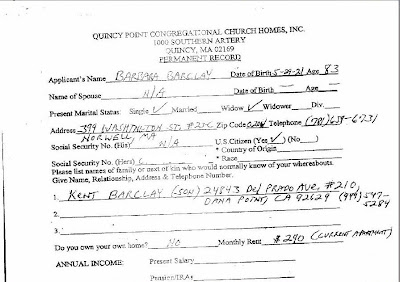 QUINCY POINT CONGREGATIONAL CHURCH HOMES, INC.
1000 SOUTHERN ARTERY
QUINCY, MA 02169
PERMANENT RECORD
Applicant's Name BARBARA BARCLAY Date of Birth 5-29-21 Age 83
Name of Spouse N/A Date of Birth — Age —
Present Marital Status: Single ✓ Married Widow ✓ Widower Div.
Address 599 WASHINGTON ST. #21C Zip Code Telephone (781) 659-6731
NORWELL MA
Social Security No. (His) N/A U.S. Citizen (Yes ✓) (No)
* Country of Origin
Social Security No. (Hers) * Race
Please list names of family or next of kin who would normally know of your whereabouts.
Give Name, Relationship, Address & Telephone Number.
1. KENT BARCLAY (SON) 24843 Del PRADO AVE, #210,
DANA POINT, CA 92629 (949) 547-5284
2.
3.
Do you own your own home? NO Monthly Rent $290 (CURRENT APARTMENT)
ANNUAL INCOME: Present Salary
Pension/IRAs